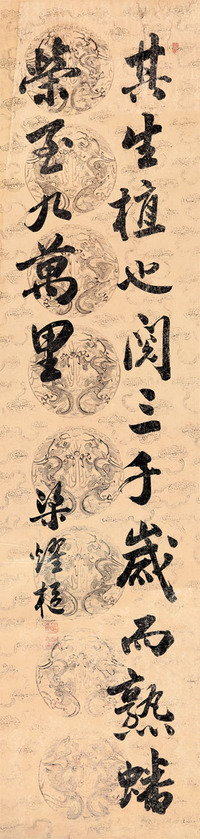 其生植也閱三千歲而熟蟠
榮至九萬里
梁燿樞